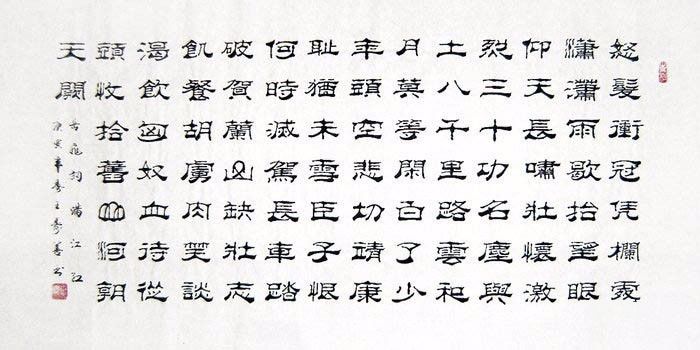 怒髮衝冠凭欄處
瀟瀟雨歇抬望眼
仰天長嘯壯懷激
烈三十功名塵與
土八千里路雲和
月莫等閑白了少
年頭空悲切靖康
恥猶未雪臣子恨
何時滅駕長車踏
破賀蘭山缺壯志
飢餐胡虜肉笑談
渴飲匈奴血待從
頭收拾舊山河朝
天闕
岳飛詞滿江紅
庚寅年王壽善书